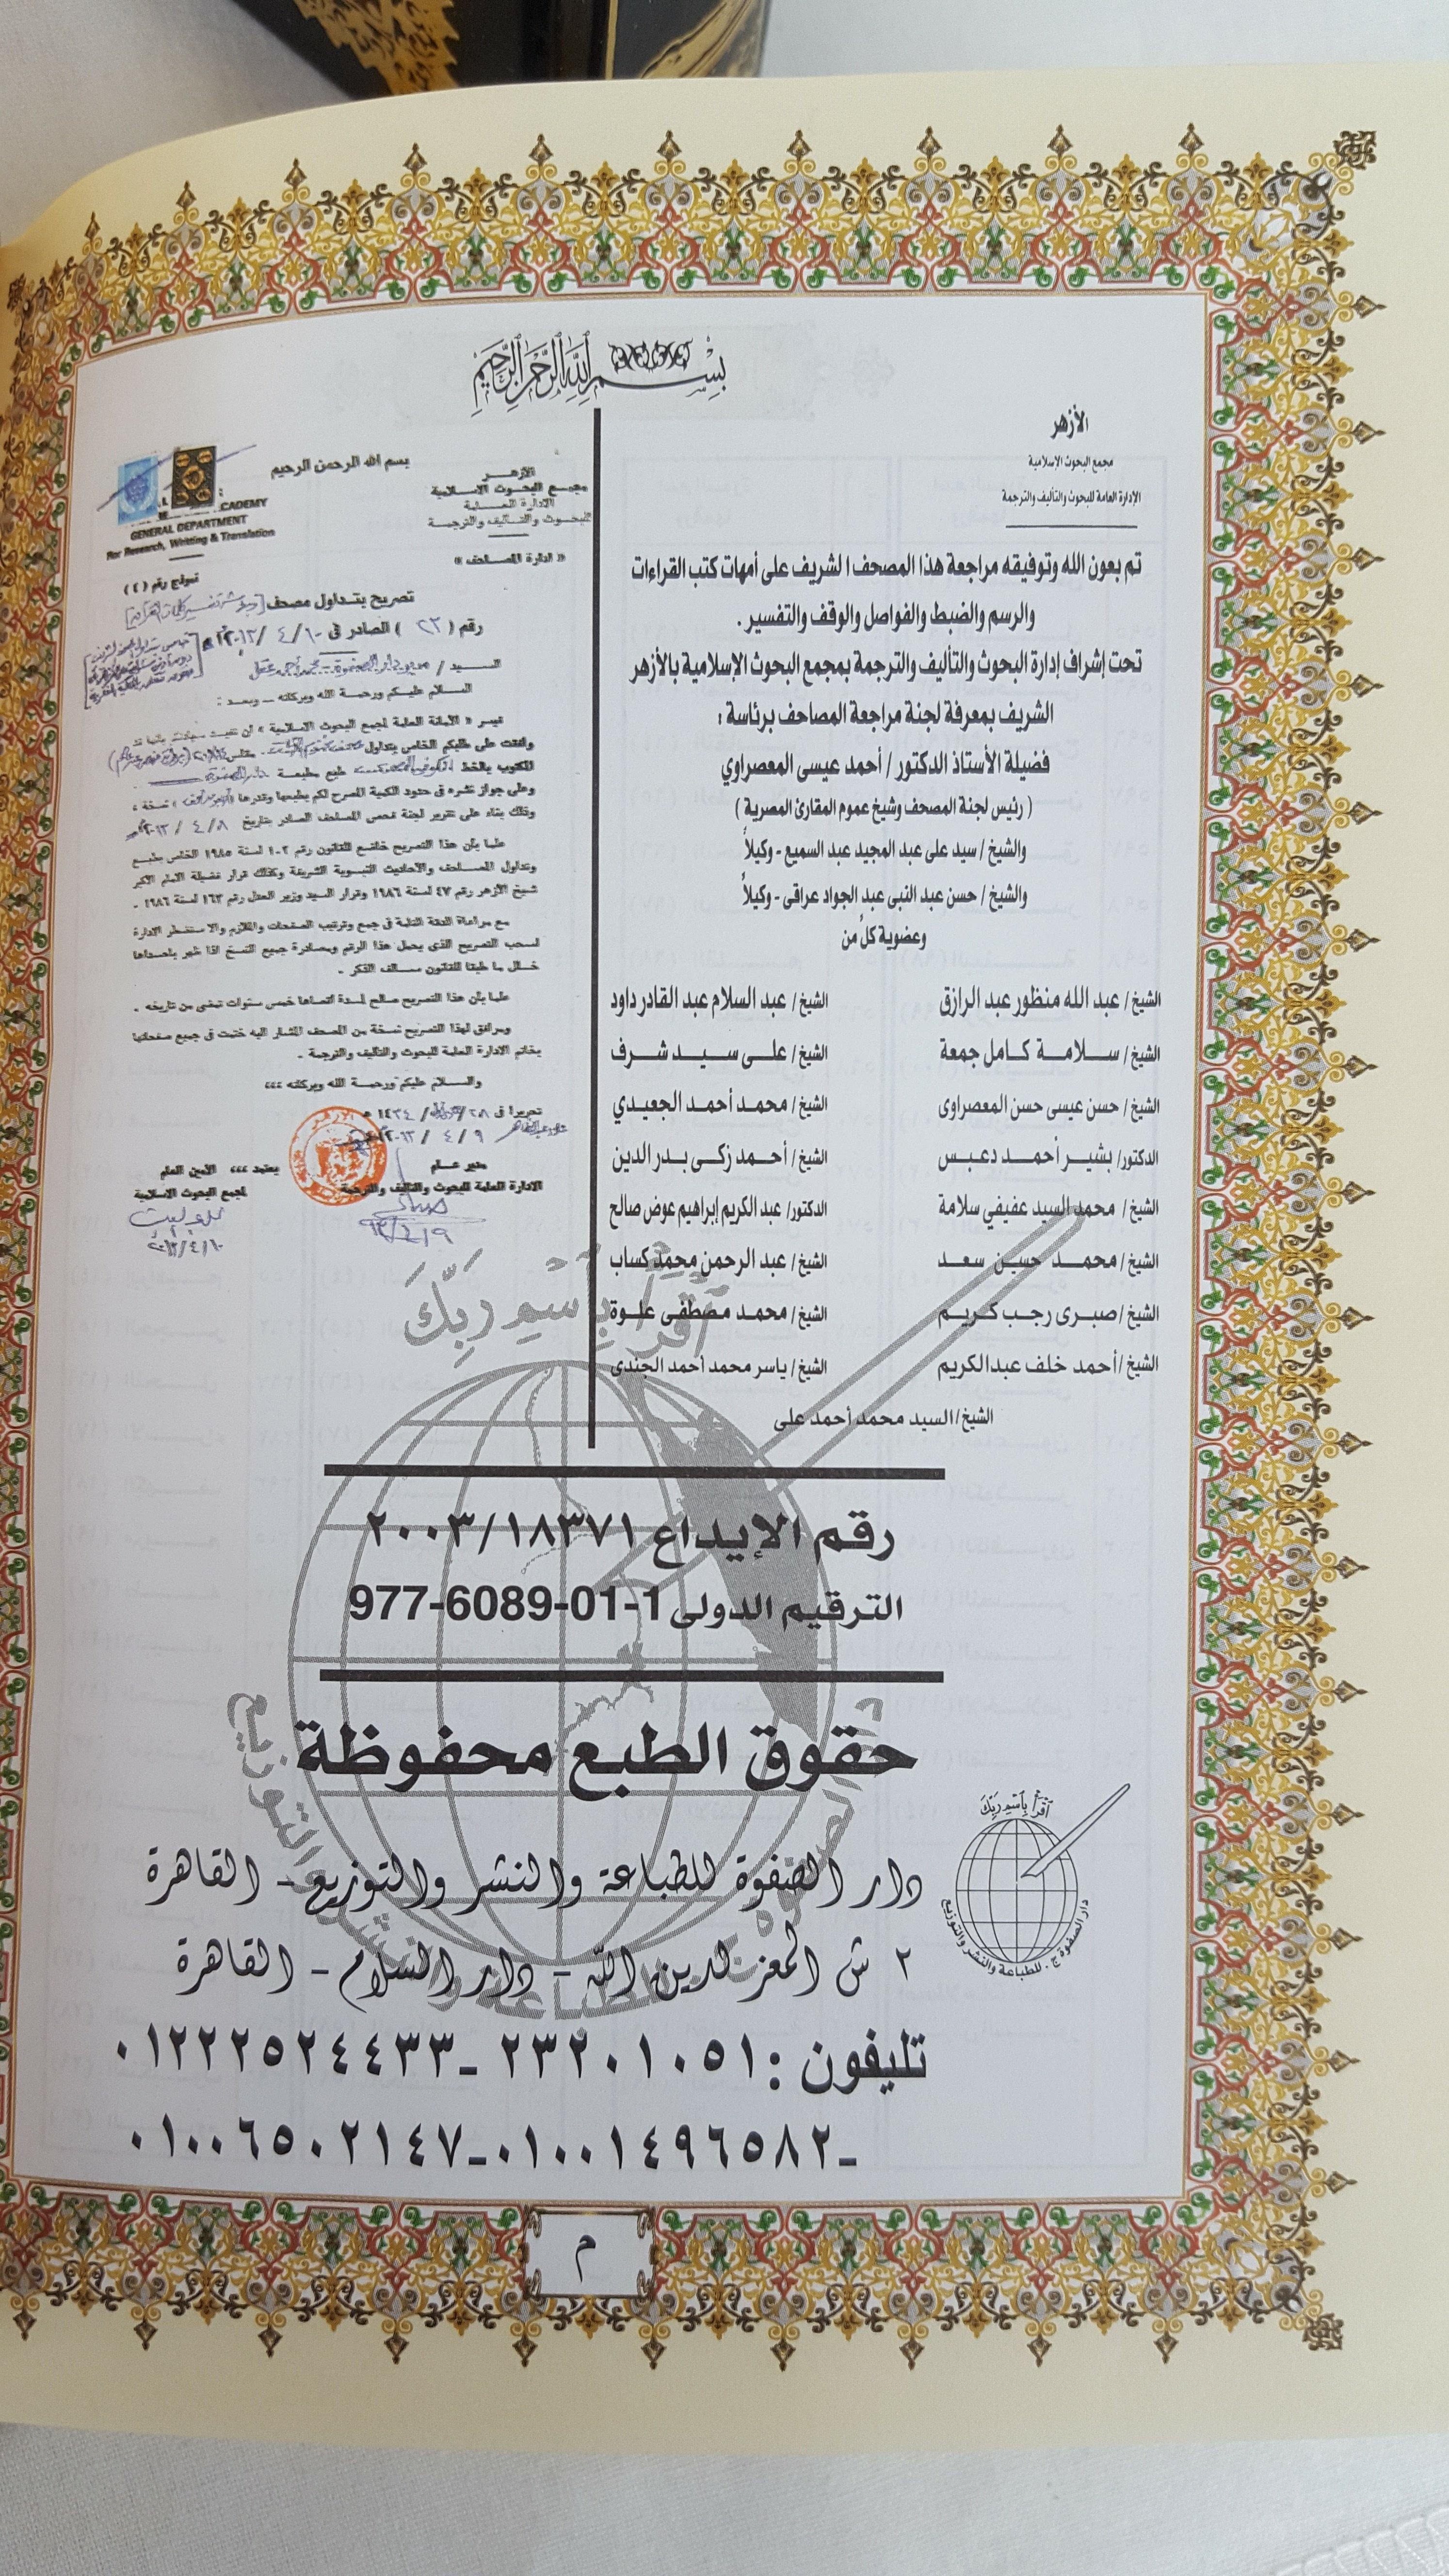 بسم الله الرحمن الرحيم
الأزهر
مجمع البحوث الإسلامية
الإدارة العامة للبحوث والتأليف والترجمة
تم بعون الله وتوفيقه مراجعة هذا المصحف الشريف على أمهات كتب القراءات
والرسم والضبط والفواصل والوقف والتفسير .
تحت إشراف إدارة البحوث والتأليف والترجمة بمجمع البحوث الإسلامية بالأزهر
الشريف بمعرفة لجنة مراجعة المصاحف برئاسة :
فضيلة الأستاذ الدكتور / أحمد عيسى المعصراوي
( رئيس لجنة المصحف وشيخ عموم المقارئ المصرية )
والشيخ / سيد على عبد المجيد عبد السميع - وكيلاً
والشيخ / حسن عبد النبى عبد الجواد عراقى - وكيلاً
وعضوية كلٌ من
الشيخ/ عبد الله منظور عبد الرازق الشيخ/ عبد السلام عبد القادر داود
الشيخ/ ســلامــة كــامل جمعة الشيخ/ علــى ســيــد شــرف
الشيخ/ حسن عيسى حسن المعصراوى الشيخ/ محمــد أحمــد الجعيــدي
الدكتور/ بشيــر أحمــد دعبــس الشيخ/ أحــمــد زكــى بــدر الدين
الشيخ/ محمد السيد عفيفي سلامة الدكتور/ عبد الكريم إبراهيم عوض صالح
الشيخ/ محمــد حسين سعــد الشيخ/ عبد الرحمن محمد كساب
الشيخ/ صبــرى رجب كــريــم الشيخ/ محمــد مصطفى علــوة
الشيخ/ أحمد خلف عبدالكريم الشيخ/ ياسر محمد أحمد الجندى
الشيخ/ السيد محمد أحمد على
بسم الله الرحمن الرحيم
الأزهــر
مجمــع البحــوث الاسلاميــة
الادارة العــامــة
للبحــوث والتــأليف والترجمــة
« ادارة المصــاحف »
CADEMY
GENERAL DEPARTMENT
For Research, Writting & Translation
نموذج رقم ( ٤ )
تصريح بتــداول مصحف
رقم ( ٢٣ ) الصادر فى ١٠ / ٤ / ٢٠١٣م
الســيد / مدير دار الصفوة - محمد أحمد عقل
السلام عليكم ورحمة الله وبركاته — وبعــد :
وعلى جواز نشره فى حدود الكمية المصرح لكم بطبعها وقدرها نسخة ،
وذلك بناء على تقرير لجنة فحص المصاحف الصادر بتاريخ ٨ / ٤ / ٢٠١٣م
علمــا بأن هذا التصريح خاضع للقانون رقم ١٠٢ لسنة ١٩٨٥ الخاص بطبــع
وتداول المصــاحف والأحاديث النبــوية الشريفة وكذلك قرار فضيلة الامام الأكبر
شيخ الأزهر رقم ٤٧ لسنة ١٩٨٦ وقرار السيد وزير العدل رقم ١٦٣ لسنة ١٩٨٦ .
مع مراعاة الدقة التامة فى جمع وترتيب الصفحات والملازم والا ستضطر الادارة
لسحب التصريح الذى يحمل هذا الرقم ومصادرة جميع النسخ اذا ظهر باحداها
خــلل ما طبقا للقانون ســالف الذكر .
علمــا بأن هذا التصريح صالح لمــدة أقصاها خمس سنوات تمضى من تاريخه .
ومرافق لهذا التصريح نسخة من المصحف المشار اليه ختمت فى جميع صفحاتها
بخاتم الادارة العامة للبحوث والتأليف والترجمة .
والســلام عليكم ورحمــة الله وبركاته ،،،
تحريرا فى ٢٨ / / ١٤٣٤ هـ
٩ / ٤ / ٢٠١٣
مدير عــام
الادارة العامة للبحوث والتأليف والترجمة
يعتمد ،،، الأمين العام
لمجمع البحوث الاسلامية
٢٠١٣/٤/١٠
اقْرَأْ بِاسْمِ رَبِّكَ
رقم الإيداع ٢٠٠٣/١٨٣٧١
الترقيم الدولى 977-6089-01-1
حقوق الطبع محفوظة
اقْرَأْ بِاسْمِ رَبِّكَ
دار الصفوة ج.م للطباعة والنشر والتوزيع
دار الصفوة للطباعة والنشر والتوزيع - القاهرة
٢ ش المعز لدين الله - دار السلام - القاهرة
تليفون : ٢٣٢٠١٠٥١ - ٠١٢٢٢٥٢٤٤٣٣
- ٠١٠٠١٤٩٦٥٨٢ - ٠١٠٠٦٥٠٢١٤٧
م